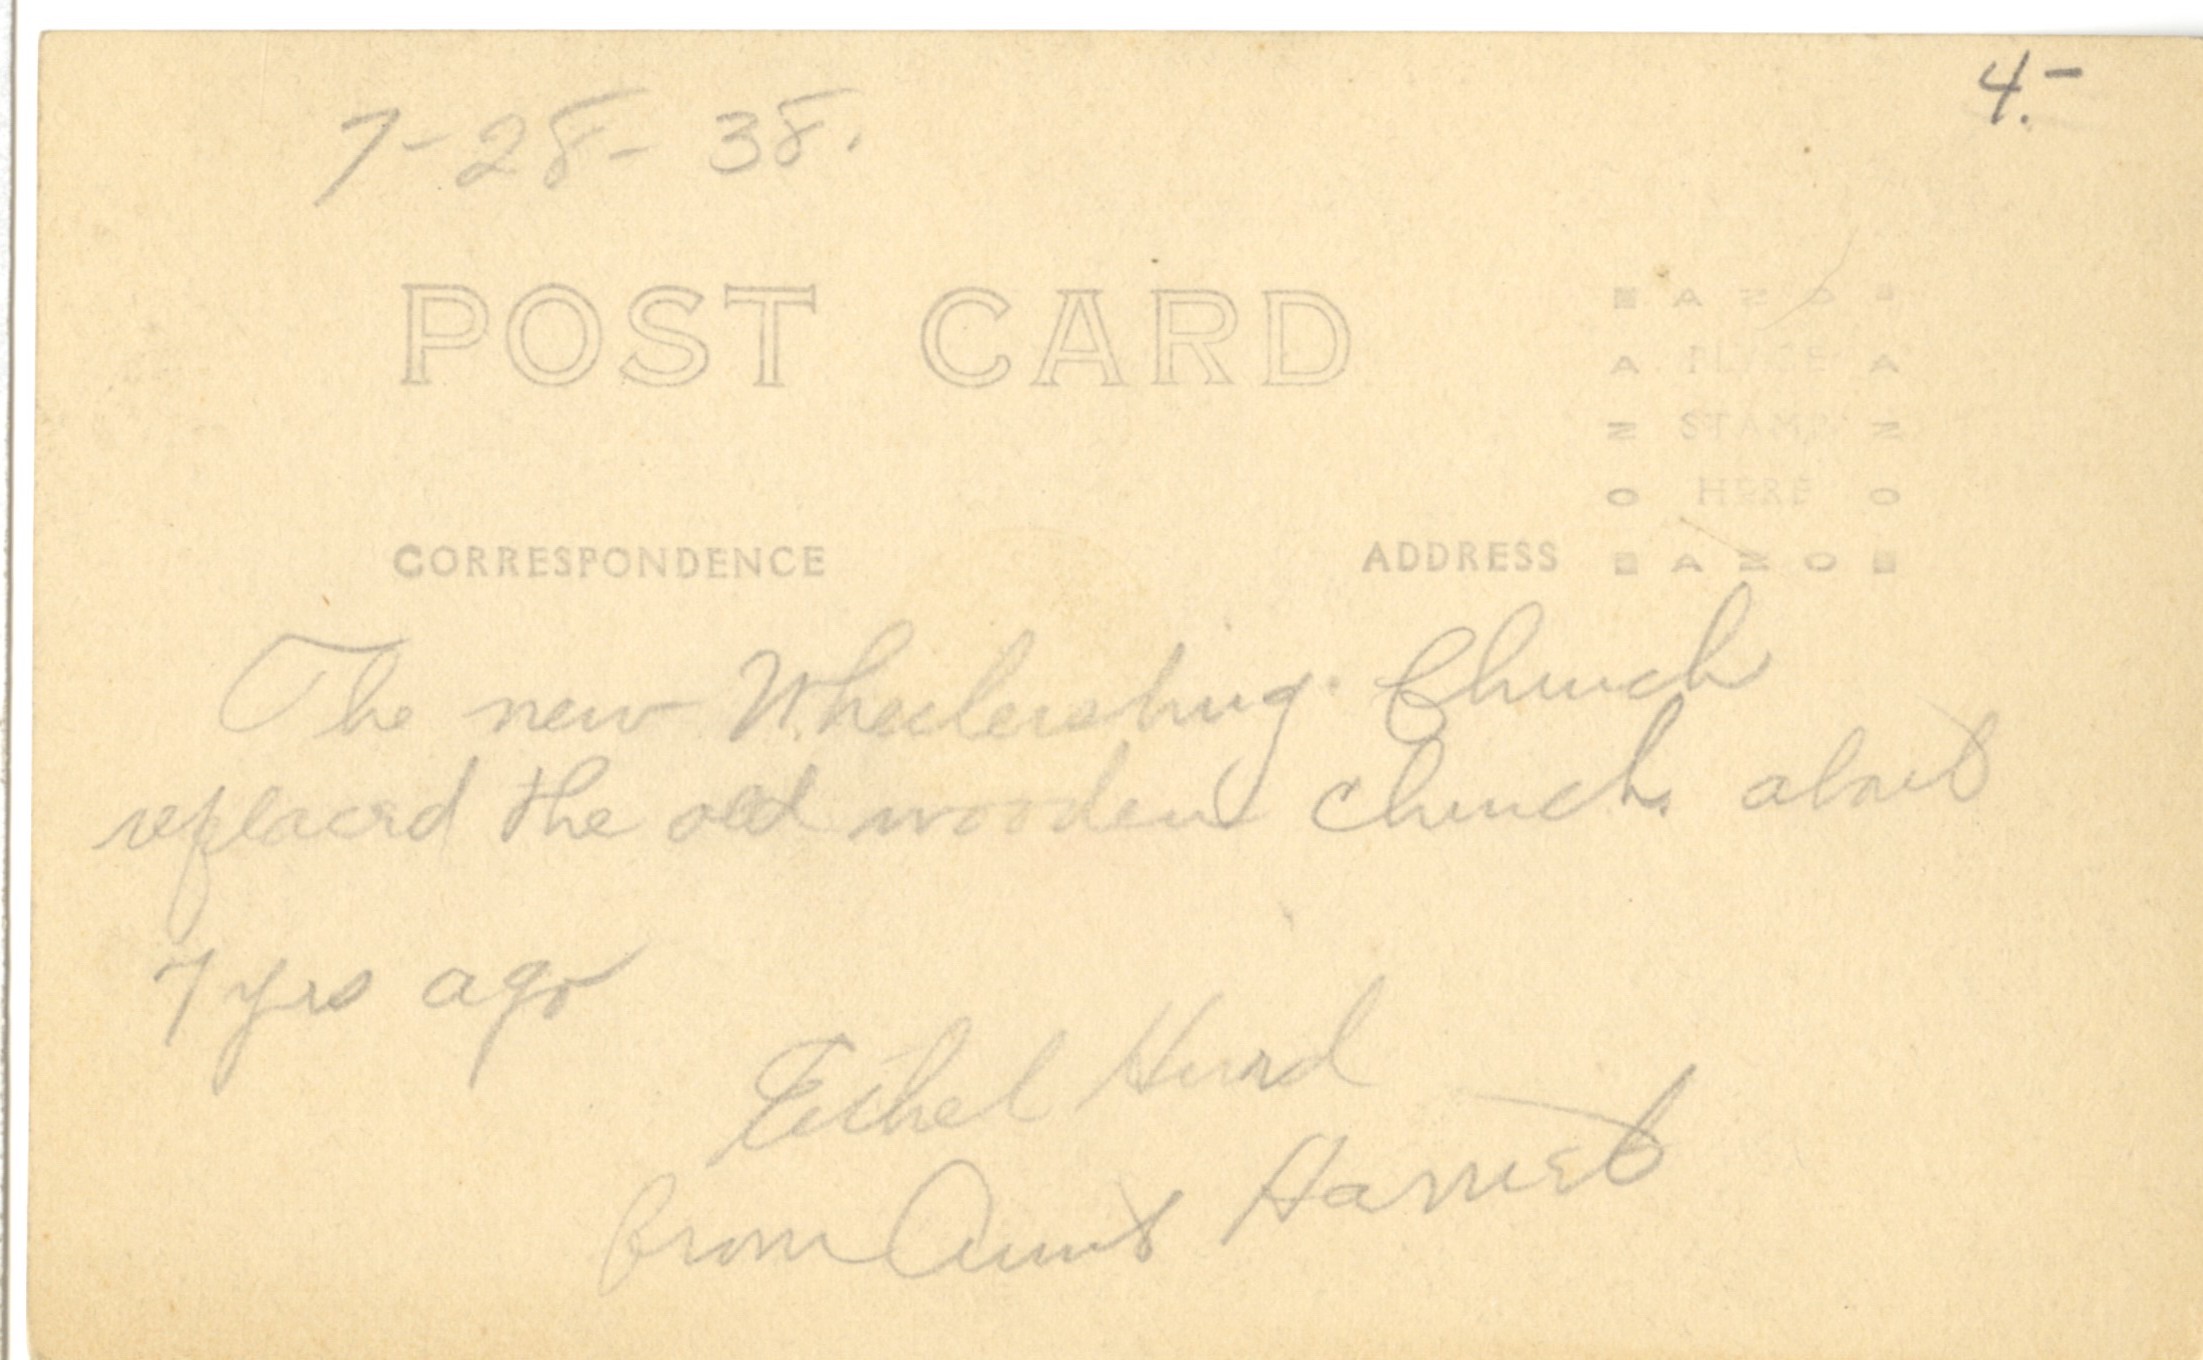 4.-
7-28-38.
POST CARD
AZO
PLACE
STAMP
HERE
AZO
CORRESPONDENCE ADDRESS
The new Wheelersburg. Church
replaced the old wooden church. about
7 yrs ago
Ethel Hurd
from Aunt Harriet